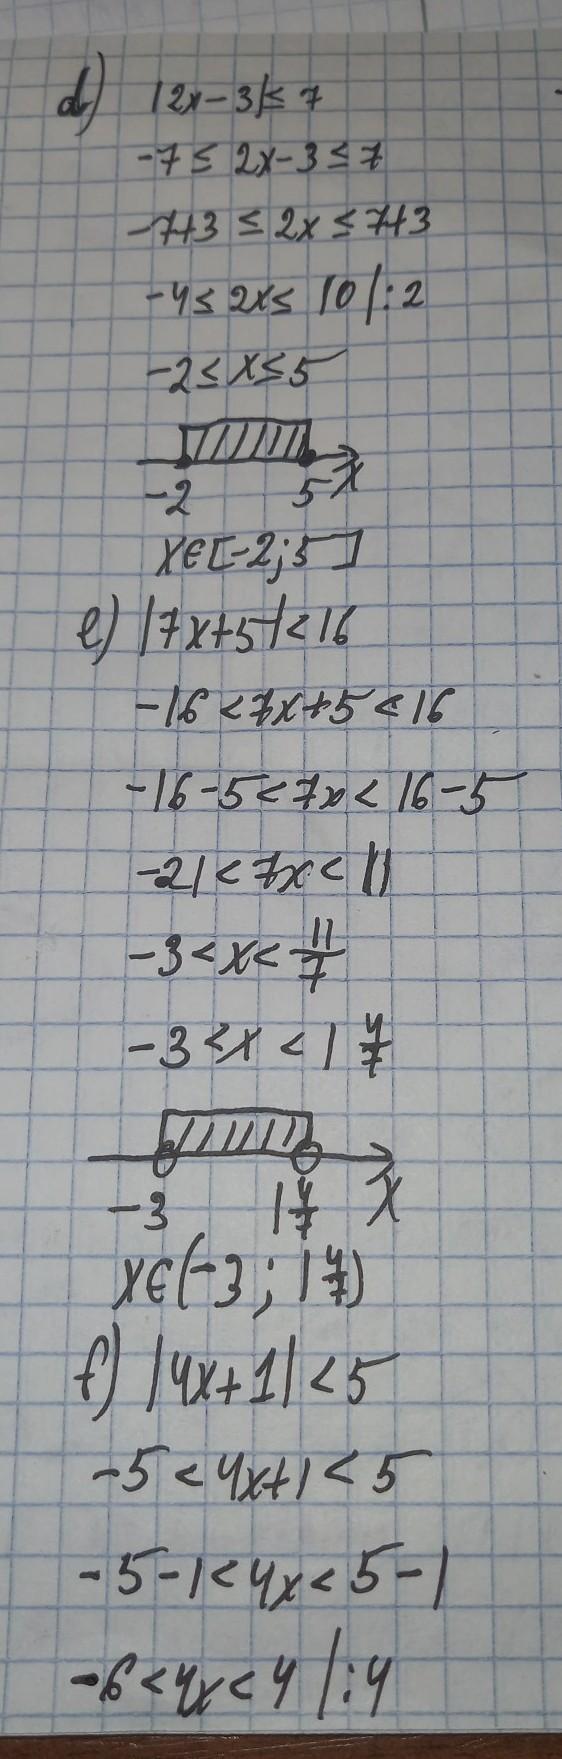 d) |2x-3|≤7
-7≤2x-3≤7
-7+3≤2x≤7+3
-4≤2x≤10 |:2
-2≤x≤5
-2 5 x
x∈[-2;5]
e) |7x+5|<16
-16<7x+5<16
-16-5<7x<16-5
-21<7x<11
-3<x<11/7
-3<x<1 4/7
-3 1 4/7 x
x∈(-3; 1 4/7)
f) |4x+1|<5
-5<4x+1<5
-5-1<4x<5-1
-6<4x<4 |:4